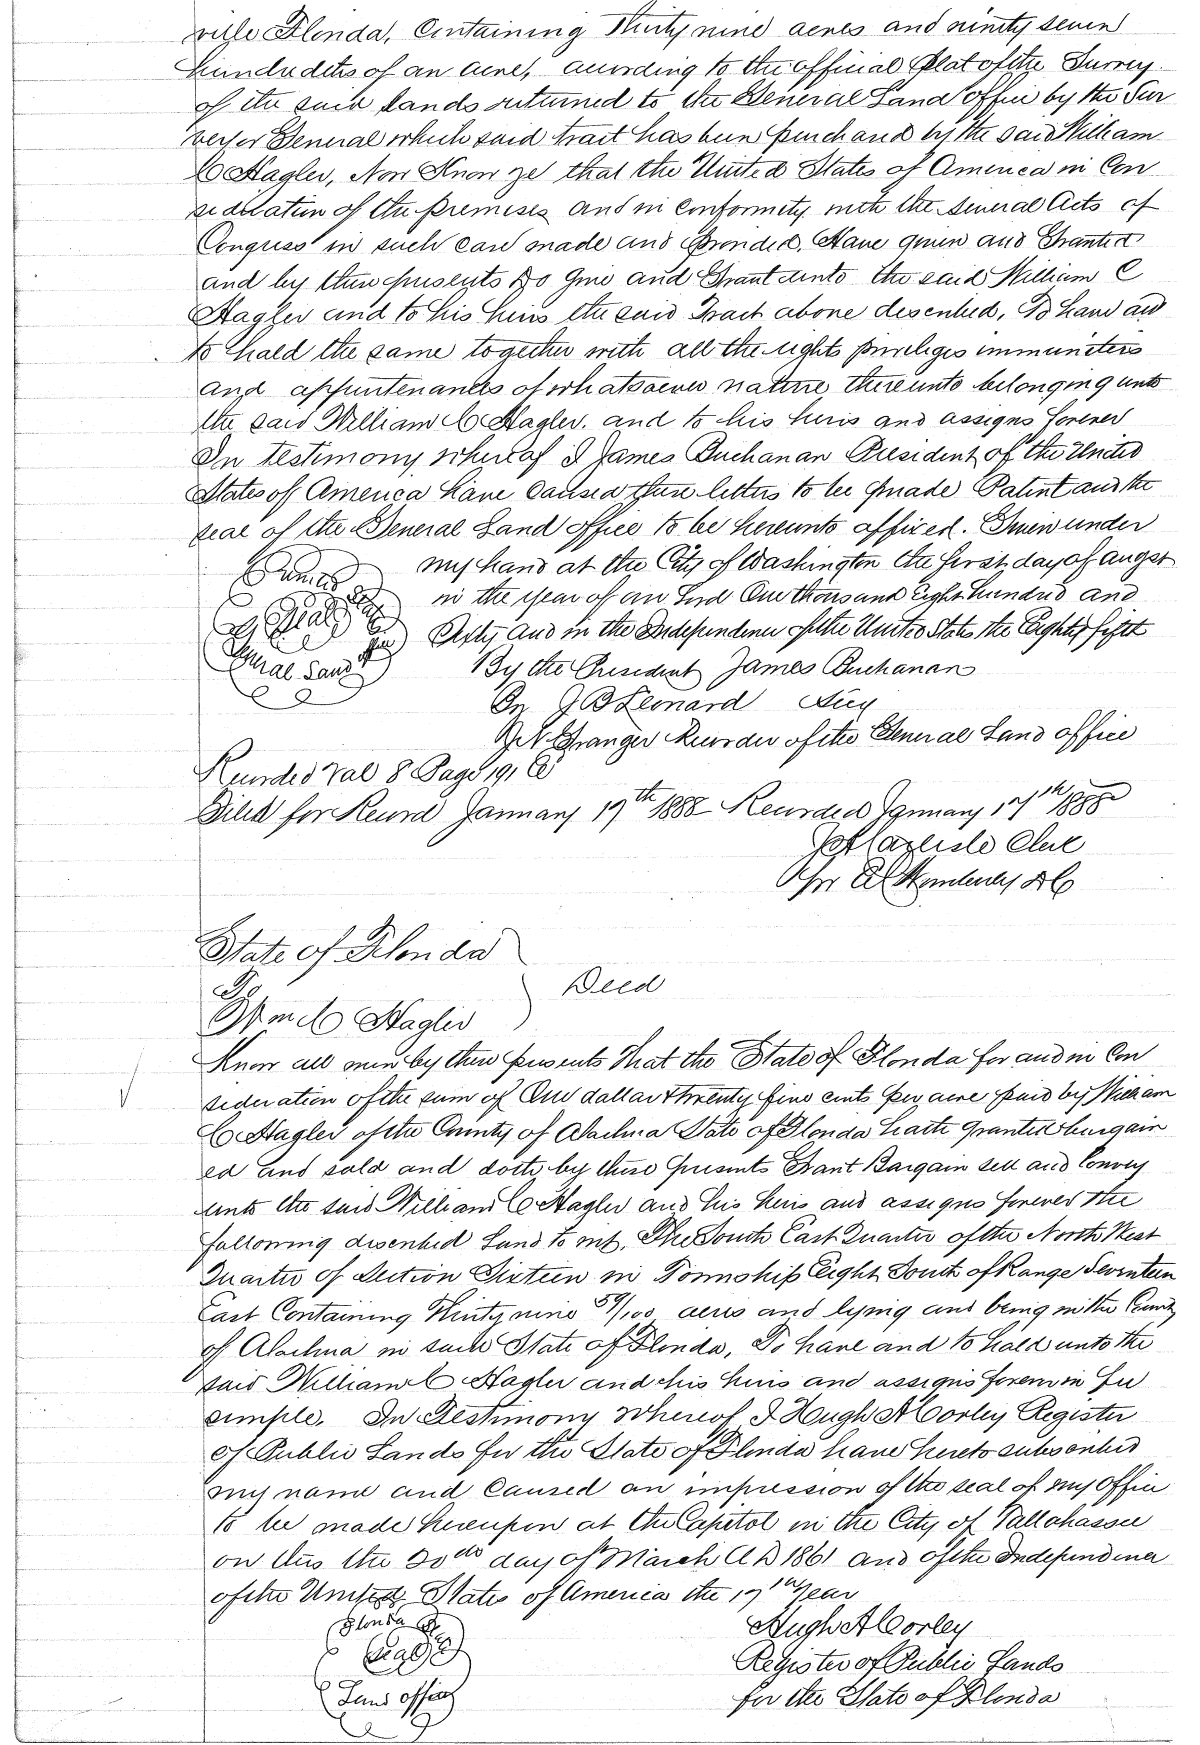 ville Florida, Containing Thirty nine acres and ninety seven
hundredths of an acre, according to the official Plat of the Survey
of the said lands returned to the General Land office by the Sur
veyor General which said tract has been purchased by the said William
C Hagler, Now Know ye that the United States of America in Con
sideration of the premises and in conformity with the several Acts of
Congress in such case made and Provided, Have given and Granted
and by these presents Do Give and Grant unto the said William C
Hagler and to his heirs the said Tract above described, To have and
to hold the same together with all the rights privileges immunities
and appurtenances of whatsoever nature thereunto belonging unto
the said William C Hagler, and to his heirs and assigns forever
In testimony whereof I James Buchanan President of the United
States of America have caused these letters to be made Patent and the
seal of the General Land office to be hereunto affixed. Given under
my hand at the City of Washington the first day of augst
in the year of our Lord One thousand Eight hundred and
Sixty and in the Independence of the United States the Eighty fifth
By the President James Buchanan
By J B Leonard Secy
Granger Recorder of the General Land office
James
Seal
Land
Recorded Vol 8 Page 191
Filed for Record January 17th 1888 Recorded January 17th 1888
Clerk
Per DC
State of Florida
To
Wm C Hagler
Deed
Know all men by these presents That the State of Florida for and in Con
sideration of the sum of One dollar & twenty five cents per acre paid by William
C Hagler of the County of Alachua State of Florida hath granted bargain
ed and sold and doth by these presents Grant Bargain sell and Convey
unto the said William C Hagler and his heirs and assigns forever the
following described Land to wit, The South East Quarter of the North West
Quarter of Section Sixteen in Township Eight South of Range Seventeen
East Containing Thirty nine 59/100 acres and lying and being in the County
of Alachua in said State of Florida, To have and to hold unto the
said William C Hagler and his heirs and assigns forever in fee
simple. In Testimony whereof I Hugh A Corley Register
of Public Lands for the State of Florida have hereto subscribed
my name and caused an impression of the seal of my office
to be made hereupon at the Capitol in the City of Tallahassee
on this the 20th day of March A D 1861 and of the Independence
of the United States of America the year
Hugh A Corley
Register of Public Lands
for the State of Florida
Florida
Seal
Land office